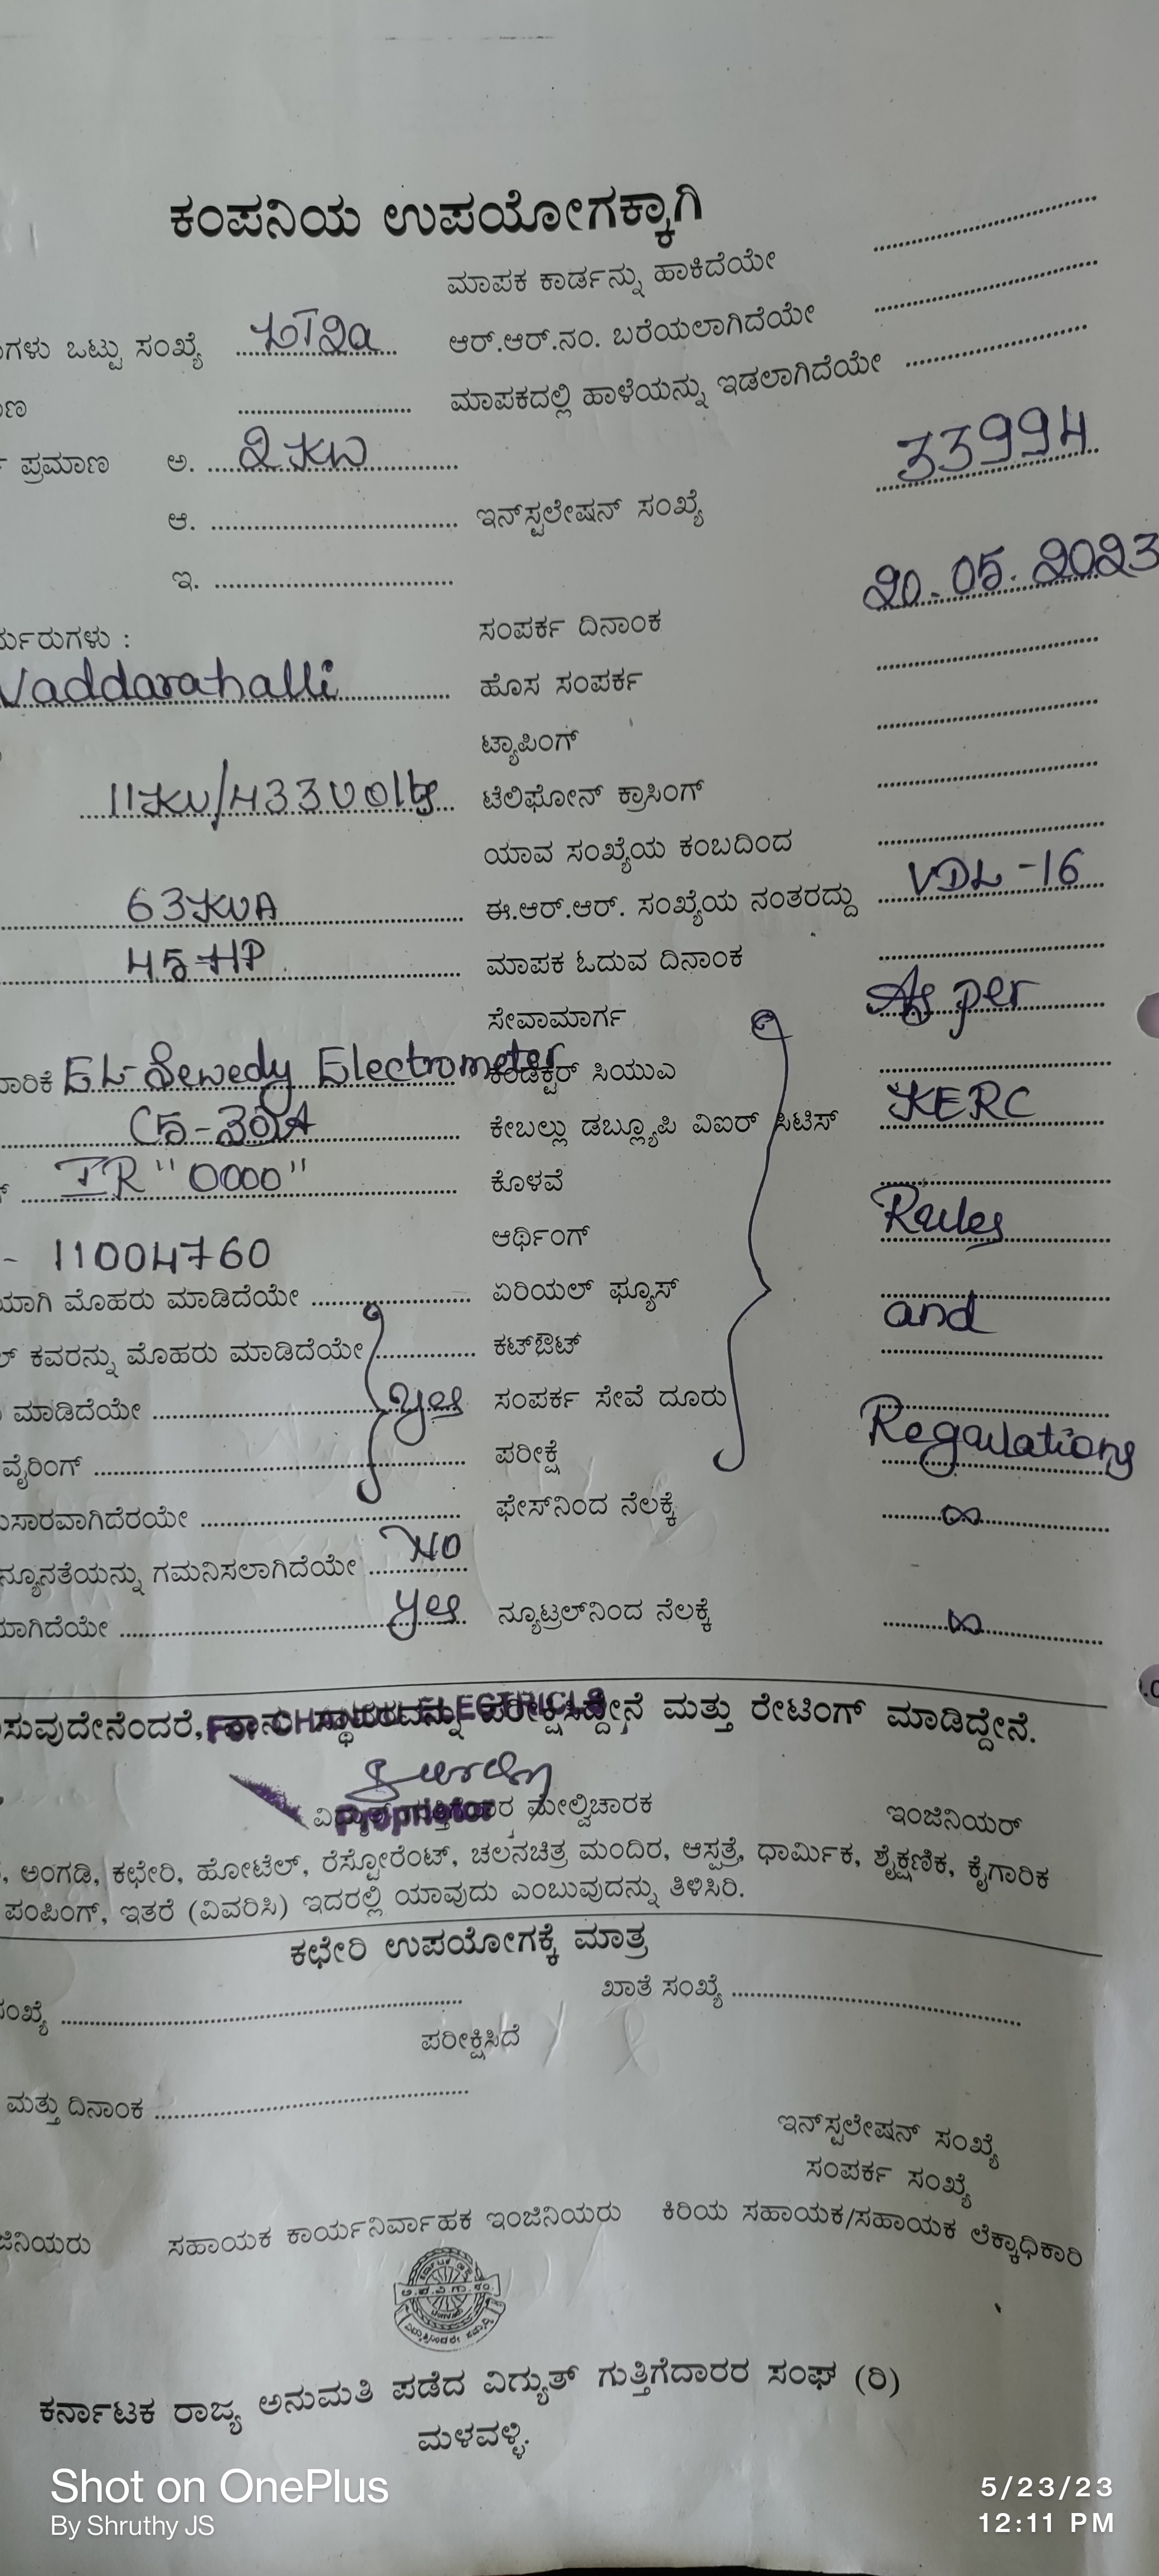 ಕಂಪನಿಯ ಉಪಯೋಗಕ್ಕಾಗಿ
ಮಾಪಕ ಕಾರ್ಡನ್ನು ಹಾಕಿದೆಯೇ ....................
ಗಳು ಒಟ್ಟು ಸಂಖ್ಯೆ LT2a ಆರ್.ಆರ್.ನಂ. ಬರೆಯಲಾಗಿದೆಯೇ ....................
ಾಣ .................... ಮಾಪಕದಲ್ಲಿ ಹಾಳೆಯನ್ನು ಇಡಲಾಗಿದೆಯೇ ....................
ಪ್ರಮಾಣ ಅ. 2 KW 33994
ಆ. .................... ಇನ್‌ಸ್ಟಲೇಷನ್ ಸಂಖ್ಯೆ
ಇ. ....................
20.05.2023
ರ್ಯರುಗಳು : ಸಂಪರ್ಕ ದಿನಾಂಕ
Vaddarahalli ಹೊಸ ಸಂಪರ್ಕ ....................
ಟ್ಯಾಪಿಂಗ್ ....................
11KV/433Volts ಟೆಲಿಫೋನ್ ಕ್ರಾಸಿಂಗ್ ....................
ಯಾವ ಸಂಖ್ಯೆಯ ಕಂಬದಿಂದ ....................
63KVA ಈ.ಆರ್.ಆರ್. ಸಂಖ್ಯೆಯ ನಂತರದ್ದು VDL-16
45 HP ಮಾಪಕ ಓದುವ ದಿನಾಂಕ ....................
ಸೇವಾಮಾರ್ಗ As per
ಾರಿಕೆ EL-Sewedy Electrometer ಕಂಡಕ್ಟರ್ ಸಿಯುಎ ....................
C5-30A ಕೇಬಲ್ಲು ಡಬ್ಲ್ಯೂಪಿ ವಿಐಆರ್ ಸಿಟಿಸ್ KERC
IR "0000" ಕೊಳವೆ ....................
- 11004760 ಆರ್ಥಿಂಗ್ Rules
ಯಾಗಿ ಮೊಹರು ಮಾಡಿದೆಯೇ .................... ಏರಿಯಲ್ ಫ್ಯೂಸ್ ....................
ಲ್ ಕವರನ್ನು ಮೊಹರು ಮಾಡಿದೆಯೇ .................... ಕಟ್‌ಔಟ್ and
ಮಾಡಿದೆಯೇ .................... yes ಸಂಪರ್ಕ ಸೇವೆ ದೂರು ....................
ವೈರಿಂಗ್ .................... ಪರೀಕ್ಷೆ Regulations
ುಸಾರವಾಗಿದೆರಯೇ .................... ಫೇಸ್‌ನಿಂದ ನೆಲಕ್ಕೆ ∞
ನ್ಯೂನತೆಯನ್ನು ಗಮನಿಸಲಾಗಿದೆಯೇ NO
ಮಾಗಿದೆಯೇ .................... yes ನ್ಯೂಟ್ರಲ್‌ನಿಂದ ನೆಲಕ್ಕೆ ∞
ಸುವುದೇನೆಂದರೆ, ನಾನು ಸ್ಥಾವರವನ್ನು ಪರೀಕ್ಷಿಸಿದ್ದೇನೆ ಮತ್ತು ರೇಟಿಂಗ್ ಮಾಡಿದ್ದೇನೆ.
For ELECTRICLS
Proprietor
ಮೇಲ್ವಿಚಾರಕ ಇಂಜಿನಿಯರ್
, ಅಂಗಡಿ, ಕಛೇರಿ, ಹೋಟೆಲ್, ರೆಸ್ಟೋರೆಂಟ್, ಚಲನಚಿತ್ರ ಮಂದಿರ, ಆಸ್ಪತ್ರೆ, ಧಾರ್ಮಿಕ, ಶೈಕ್ಷಣಿಕ, ಕೈಗಾರಿಕ
ಪಂಪಿಂಗ್, ಇತರೆ (ವಿವರಿಸಿ) ಇದರಲ್ಲಿ ಯಾವುದು ಎಂಬುವುದನ್ನು ತಿಳಿಸಿರಿ.
ಕಛೇರಿ ಉಪಯೋಗಕ್ಕೆ ಮಾತ್ರ
ಸಂಖ್ಯೆ .................... ಖಾತೆ ಸಂಖ್ಯೆ ....................
ಪರೀಕ್ಷಿಸಿದೆ
ಮತ್ತು ದಿನಾಂಕ ....................
ಇನ್‌ಸ್ಟಲೇಷನ್ ಸಂಖ್ಯೆ
ಸಂಪರ್ಕ ಸಂಖ್ಯೆ
ಜಿನಿಯರು ಸಹಾಯಕ ಕಾರ್ಯನಿರ್ವಾಹಕ ಇಂಜಿನಿಯರು ಕಿರಿಯ ಸಹಾಯಕ/ಸಹಾಯಕ ಲೆಕ್ಕಾಧಿಕಾರಿ
ಕರ್ನಾಟಕ ರಾಜ್ಯ ಅನುಮತಿ ಪಡೆದ ವಿಗ್ಯುತ್ ಗುತ್ತಿಗೆದಾರರ ಸಂಘ (ರಿ)
ಮಳವಳ್ಳಿ.
Shot on OnePlus
By Shruthy JS
5/23/23
12:11 PM